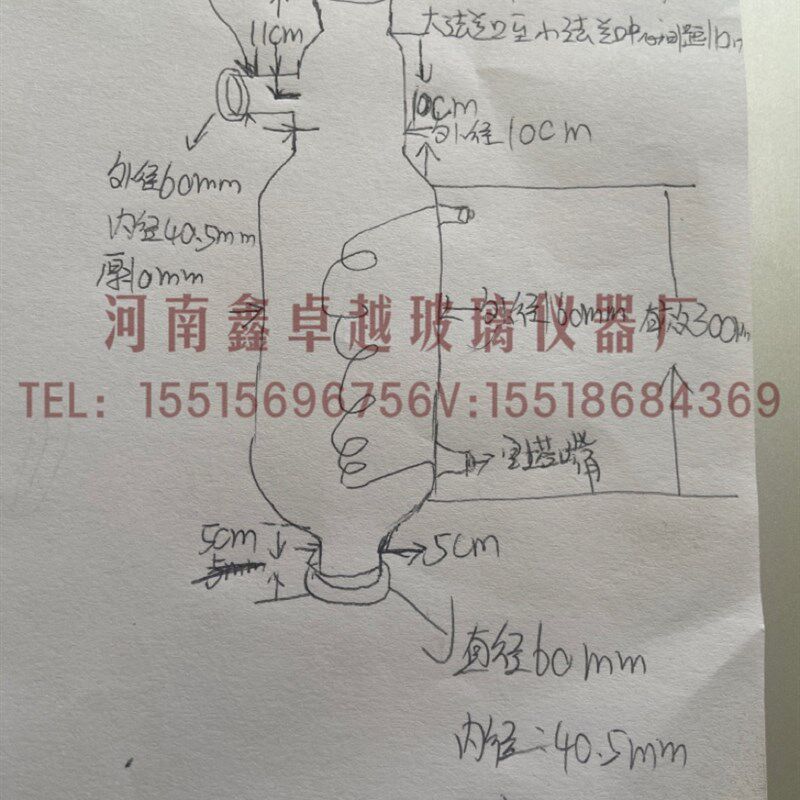 11cm
大法兰口至小法兰中心间距11cm
10cm
外径10cm
外径60mm
内径40.5mm
厚10mm
外径160mm
有效300m
河南鑫卓越玻璃仪器厂
TEL：15515696756V:15518684369
宝塔嘴
5cm
5mm
5cm
直径60mm
内径:40.5mm